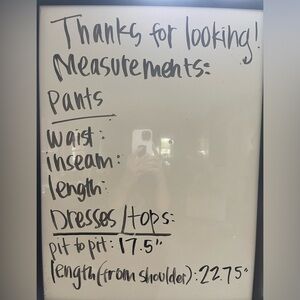 Thanks for looking!
Measurements:
Pants
Waist:
inseam:
length:
Dresses/tops:
pit to pit: 17.5"
length (from shoulder): 22.75"